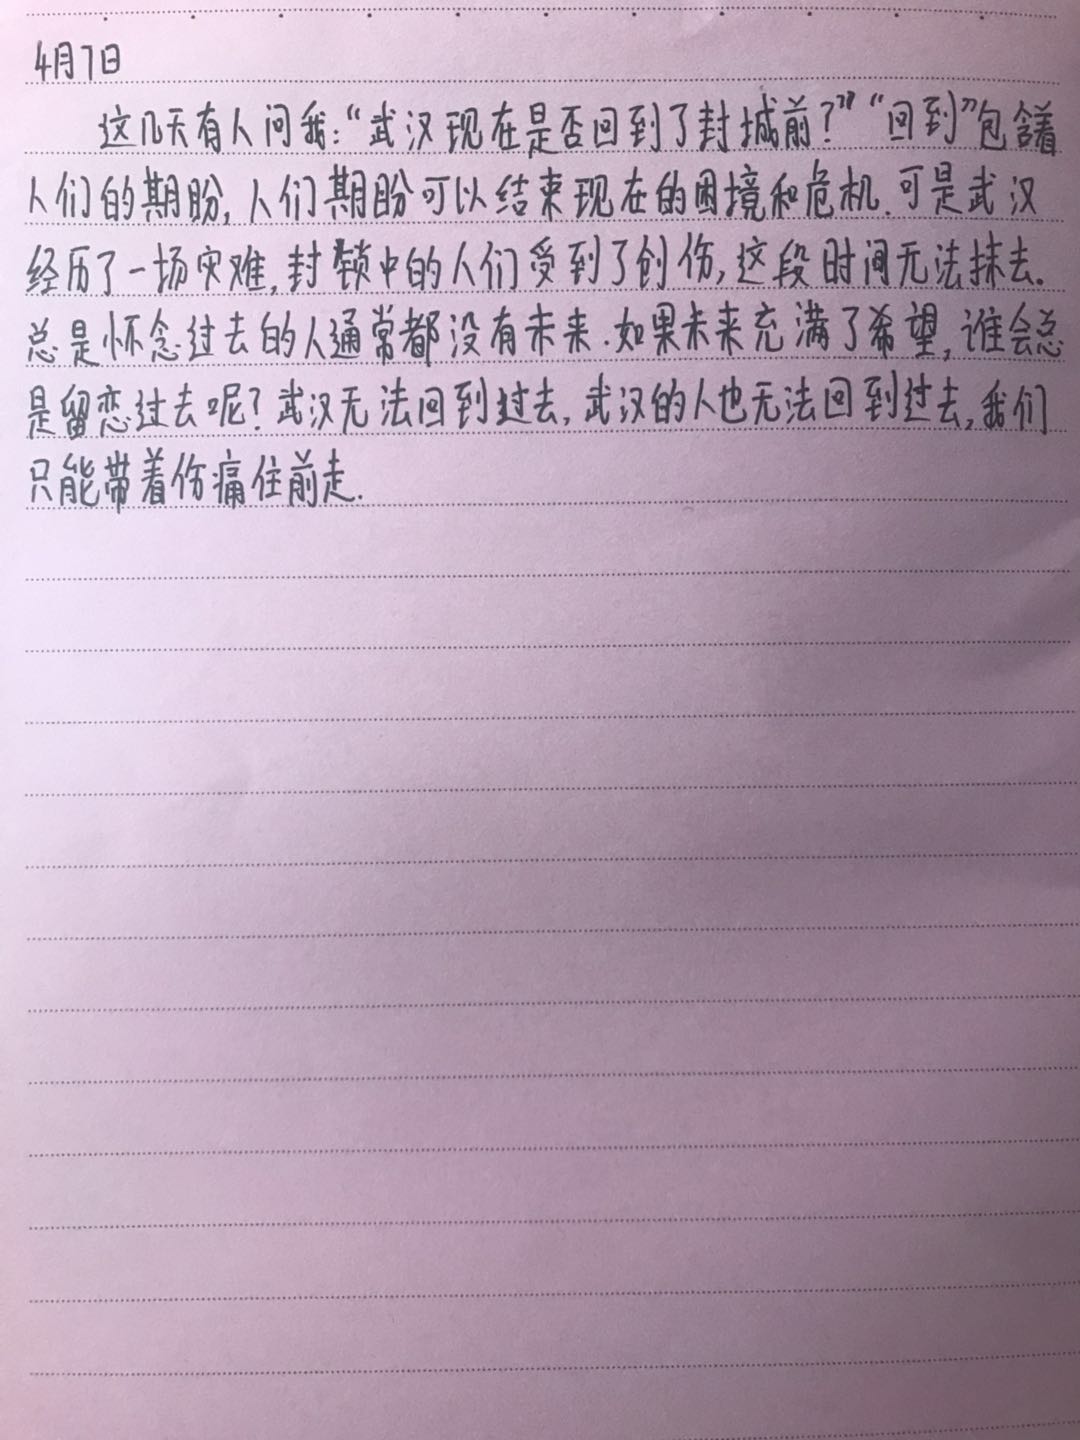 4月7日
这几天有人问我：“武汉现在是否回到了封城前？”“回到”包含着
人们的期盼，人们期盼可以结束现在的困境和危机．可是武汉
经历了一场灾难，封锁中的人们受到了创伤，这段时间无法抹去．
总是怀念过去的人通常都没有未来．如果未来充满了希望，谁会总
是留恋过去呢？武汉无法回到过去，武汉的人也无法回到过去，我们
只能带着伤痛往前走．